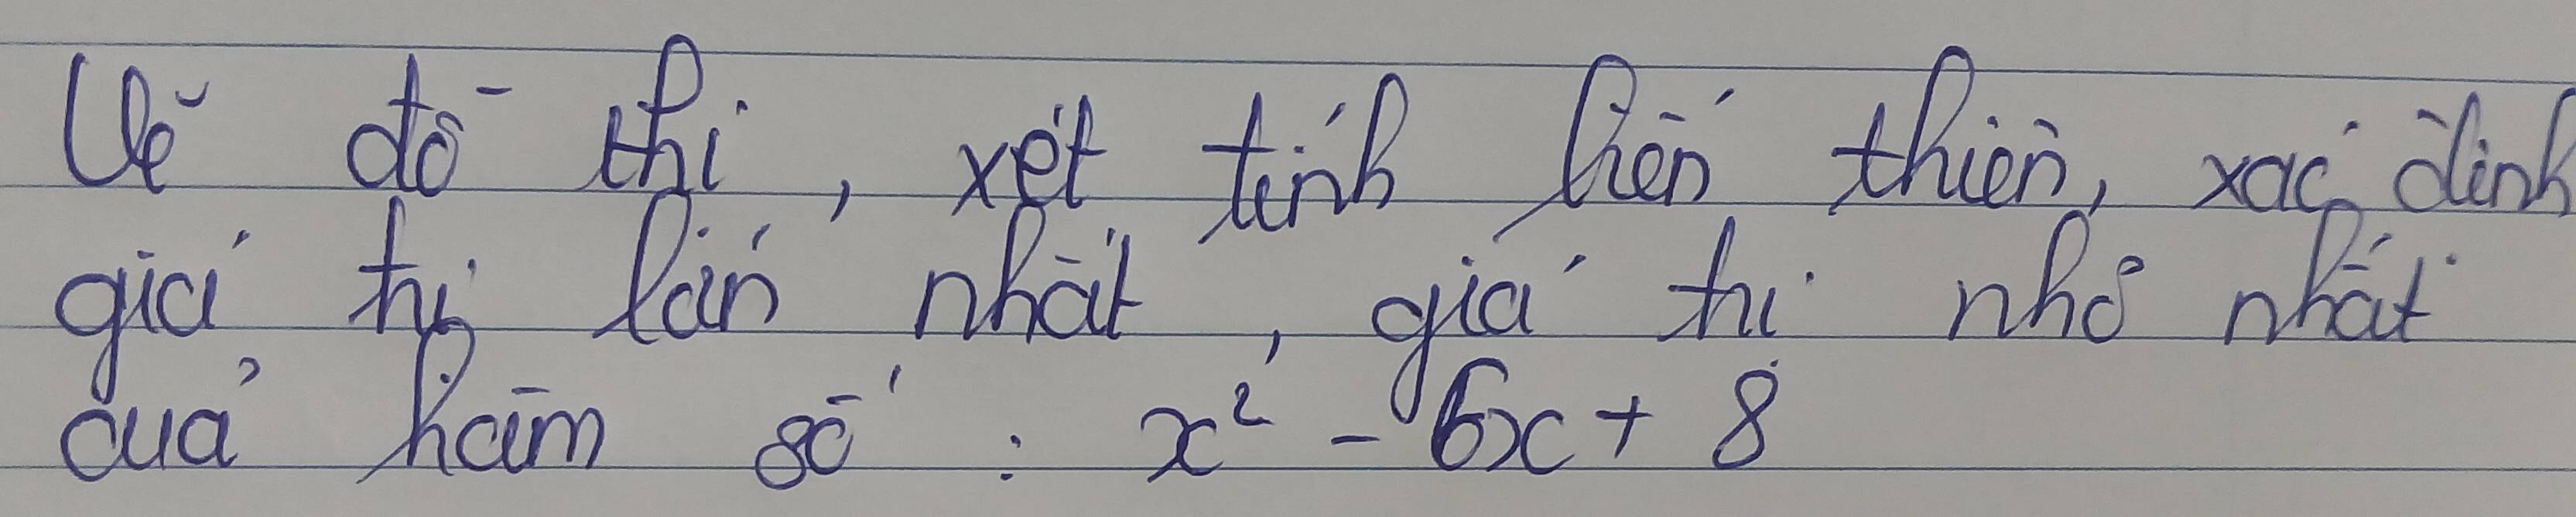 Vẽ đồ thị, xét tính biến thiên, xác định
giá trị lớn nhất, giá trị nhỏ nhất
của hàm số : x² - 6x + 8